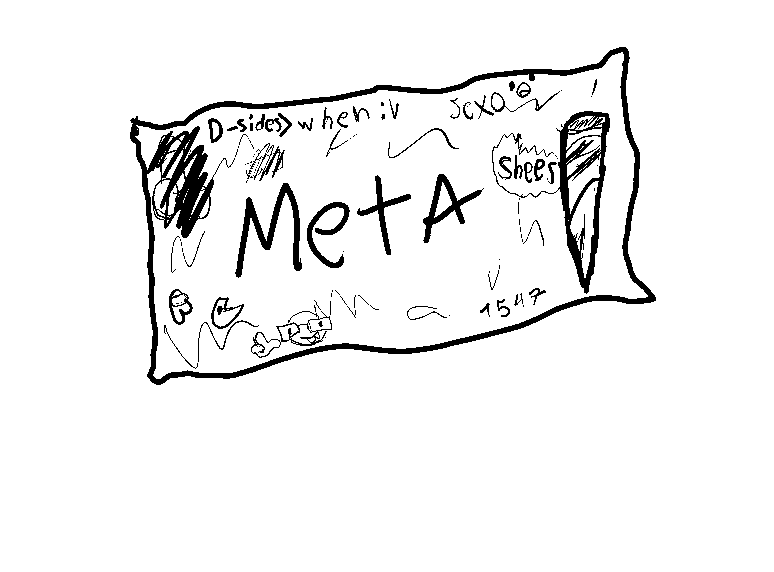 D-sides> when :v
Sheesh
MetA
1547